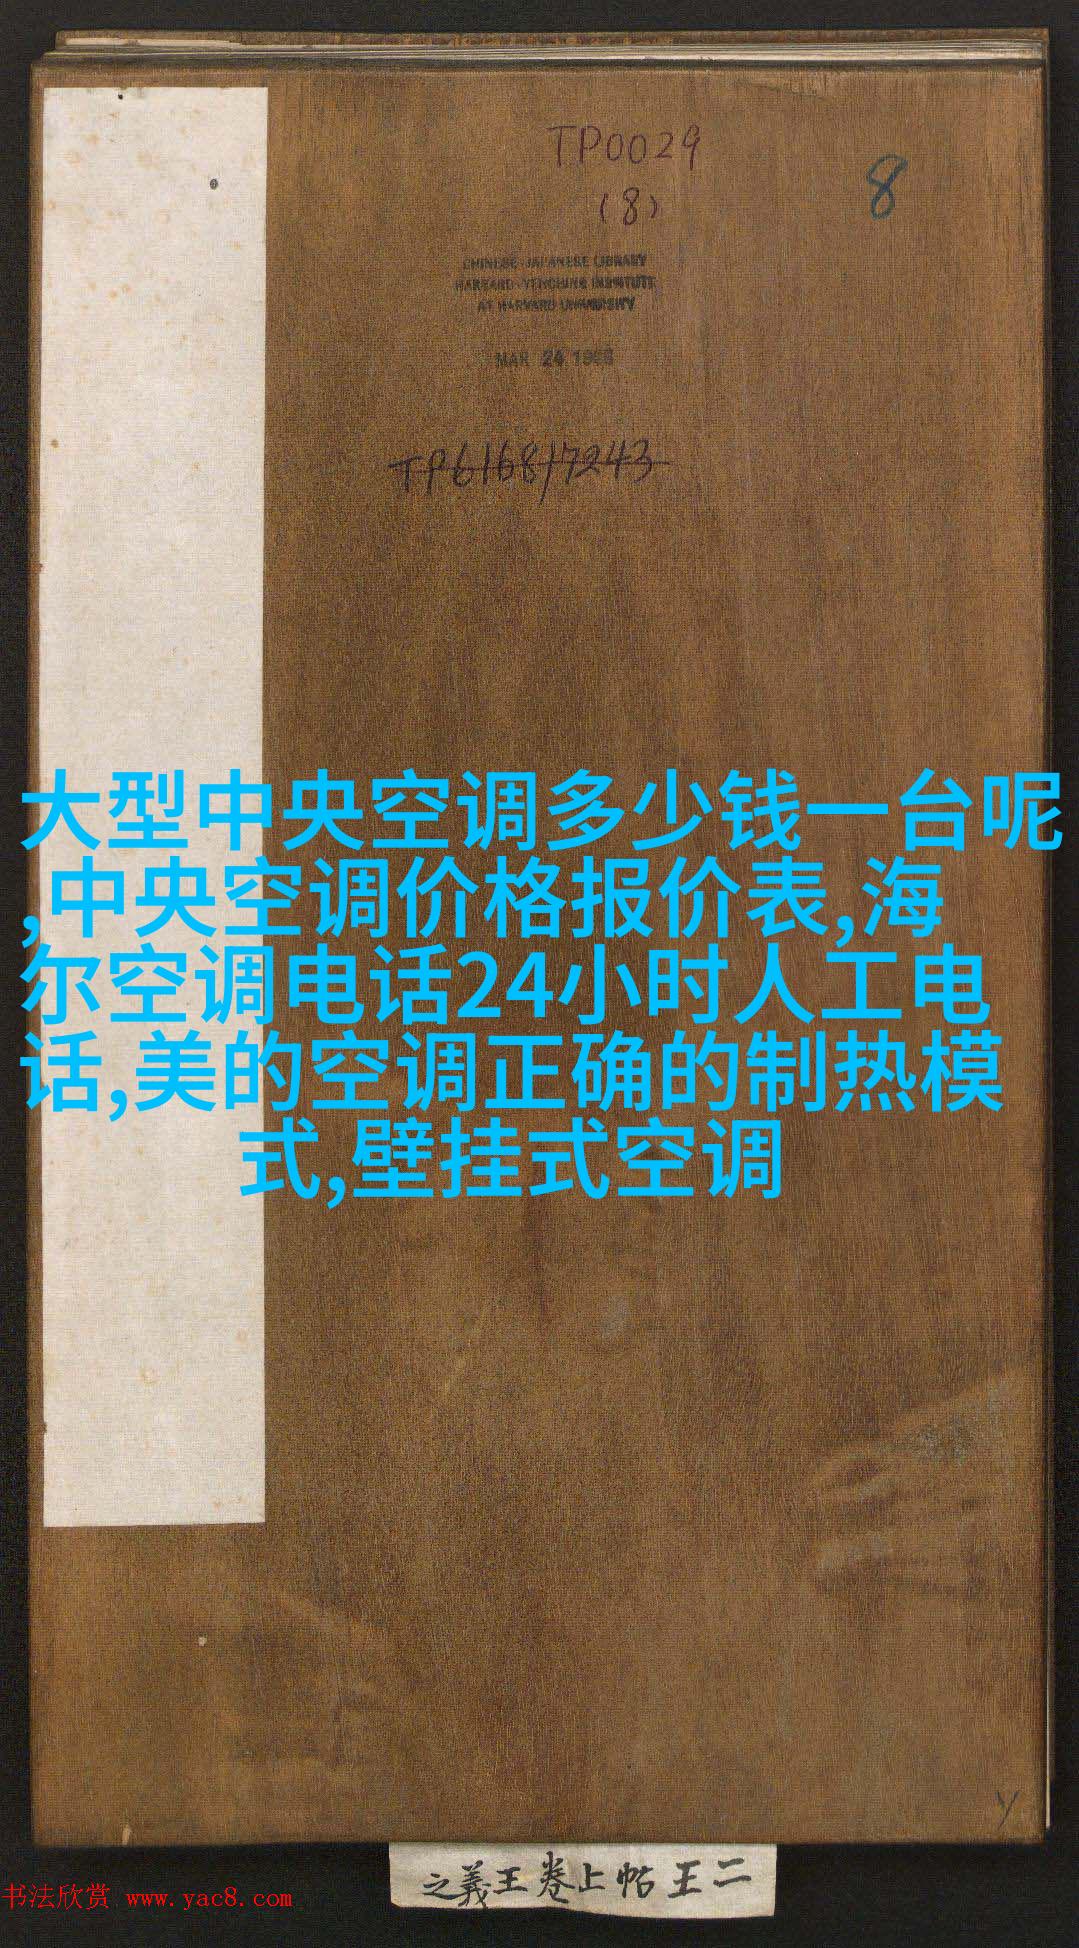 TP0029
(8)
8
CHINESE-JAPANESE LIBRARY
HARVARD-YENCHING INSTITUTE
AT HARVARD UNIVERSITY
MAR 24 19
TP6168/7243
大型中央空调多少钱一台呢
,中央空调价格报价表,海
尔空调电话24小时人工电
话,美的空调正确的制热模
式,壁挂式空调
二王帖上卷王羲之
书法欣赏 www.yac8.com